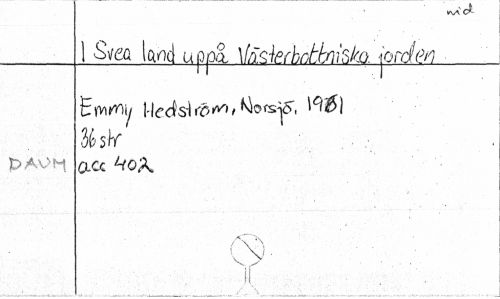 vid
I Svea land uppå Västerbottniska jorden
Emmy Hedström, Norsjö, 1981
36 str
DAUM acc 402